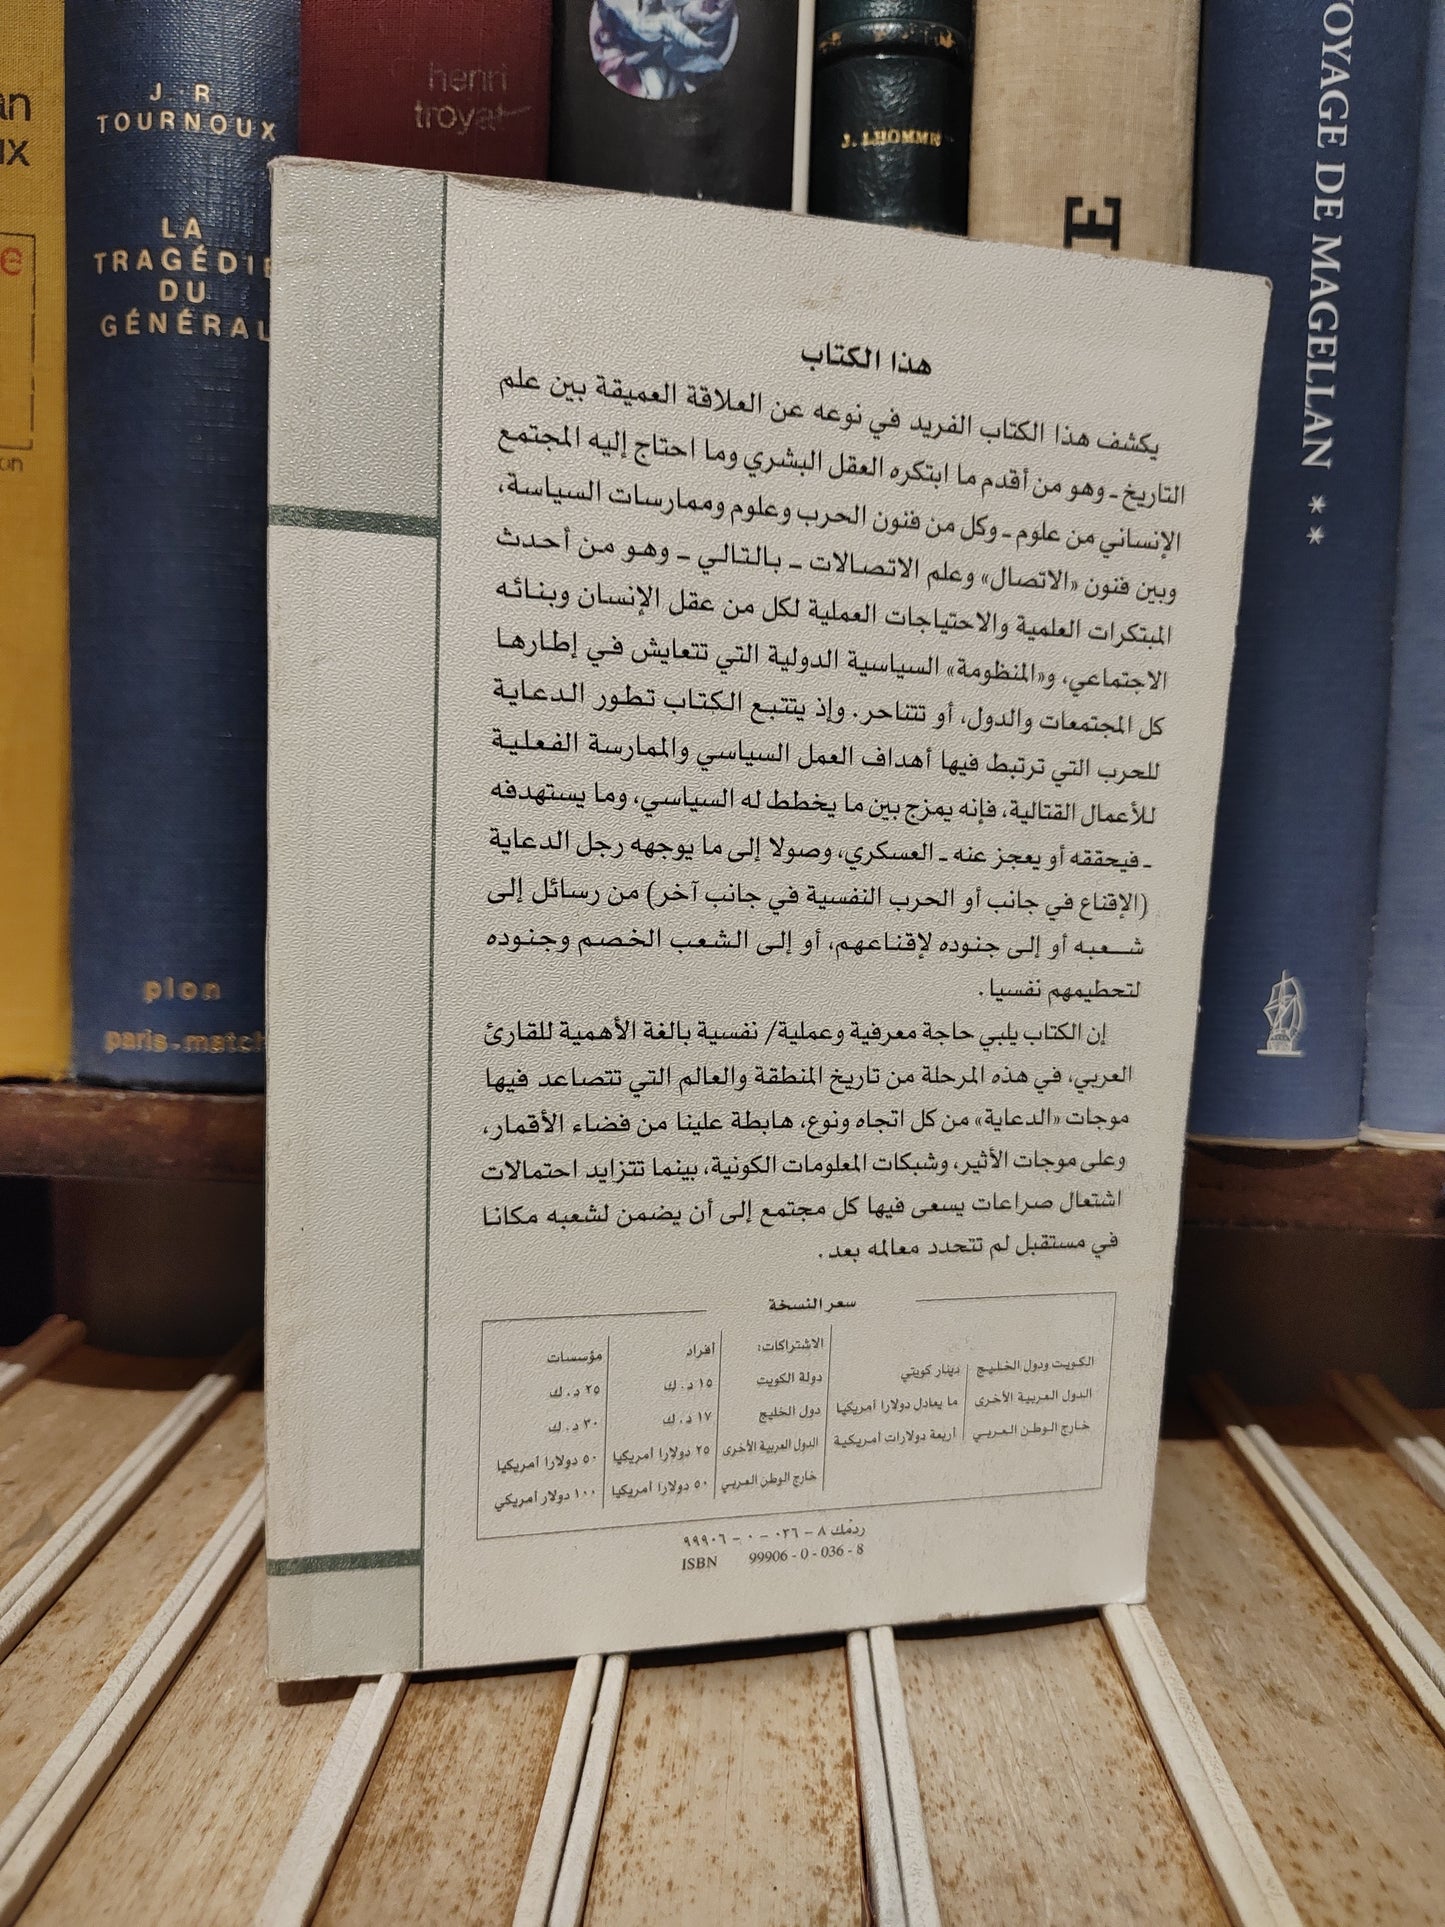 an
ux
e
on
J. R.
TOURNOUX
LA
TRAGÉDIE
DU
GÉNÉRAL
plon
paris-match
henri
troyat
J. LHOMME
E
VOYAGE DE MAGELLAN **
هذا الكتاب
يكشف هذا الكتاب الفريد في نوعه عن العلاقة العميقة بين علم
التاريخ ـ وهو من أقدم ما ابتكره العقل البشري وما احتاج إليه المجتمع
الإنساني من علوم ـ وكل من فنون الحرب وعلوم وممارسات السياسة،
وبين فنون «الاتصال» وعلم الاتصالات ـ بالتالي ـ وهو من أحدث
المبتكرات العلمية والاحتياجات العملية لكل من عقل الإنسان وبنائه
الاجتماعي، و«المنظومة» السياسية الدولية التي تتعايش في إطارها
كل المجتمعات والدول، أو تتناحر. وإذ يتتبع الكتاب تطور الدعاية
للحرب التي ترتبط فيها أهداف العمل السياسي والممارسة الفعلية
للأعمال القتالية، فإنه يمزج بين ما يخطط له السياسي، وما يستهدفه
ـ فيحققه أو يعجز عنه ـ العسكري، وصولا إلى ما يوجهه رجل الدعاية
(الإقناع في جانب أو الحرب النفسية في جانب آخر) من رسائل إلى
شعبه أو إلى جنوده لإقناعهم، أو إلى الشعب الخصم وجنوده
لتحطيمهم نفسيا.
إن الكتاب يلبي حاجة معرفية وعملية/ نفسية بالغة الأهمية للقارئ
العربي، في هذه المرحلة من تاريخ المنطقة والعالم التي تتصاعد فيها
موجات «الدعاية» من كل اتجاه ونوع، هابطة علينا من فضاء الأقمار،
وعلى موجات الأثير، وشبكات المعلومات الكونية، بينما تتزايد احتمالات
اشتعال صراعات يسعى فيها كل مجتمع إلى أن يضمن لشعبه مكانا
في مستقبل لم تتحدد معالمه بعد.
سعر النسخة
الكويت ودول الخليج دينار كويتي
الدول العربية الأخرى ما يعادل دولارا أمريكيا
خارج الوطن العربي أربعة دولارات أمريكية
الاشتراكات: أفراد مؤسسات
دولة الكويت ١٥ د.ك ٢٥ د.ك
دول الخليج ١٧ د.ك ٣٠ د.ك
الدول العربية الأخرى ٢٥ دولارا أمريكيا ٥٠ دولارا أمريكيا
خارج الوطن العربي ٥٠ دولارا أمريكيا ١٠٠ دولار أمريكي
ردمك ٨ - ٠٣٦ - ٠ - ٩٩٩٠٦
ISBN 99906 - 0 - 036 - 8